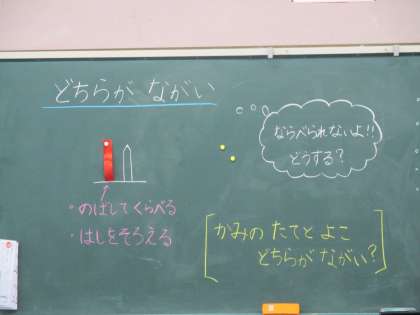 どちらが ながい
ならべられないよ!!
どうする?
・のばしてくらべる
・はしをそろえる
かみの たてと よこ
どちらが ながい?